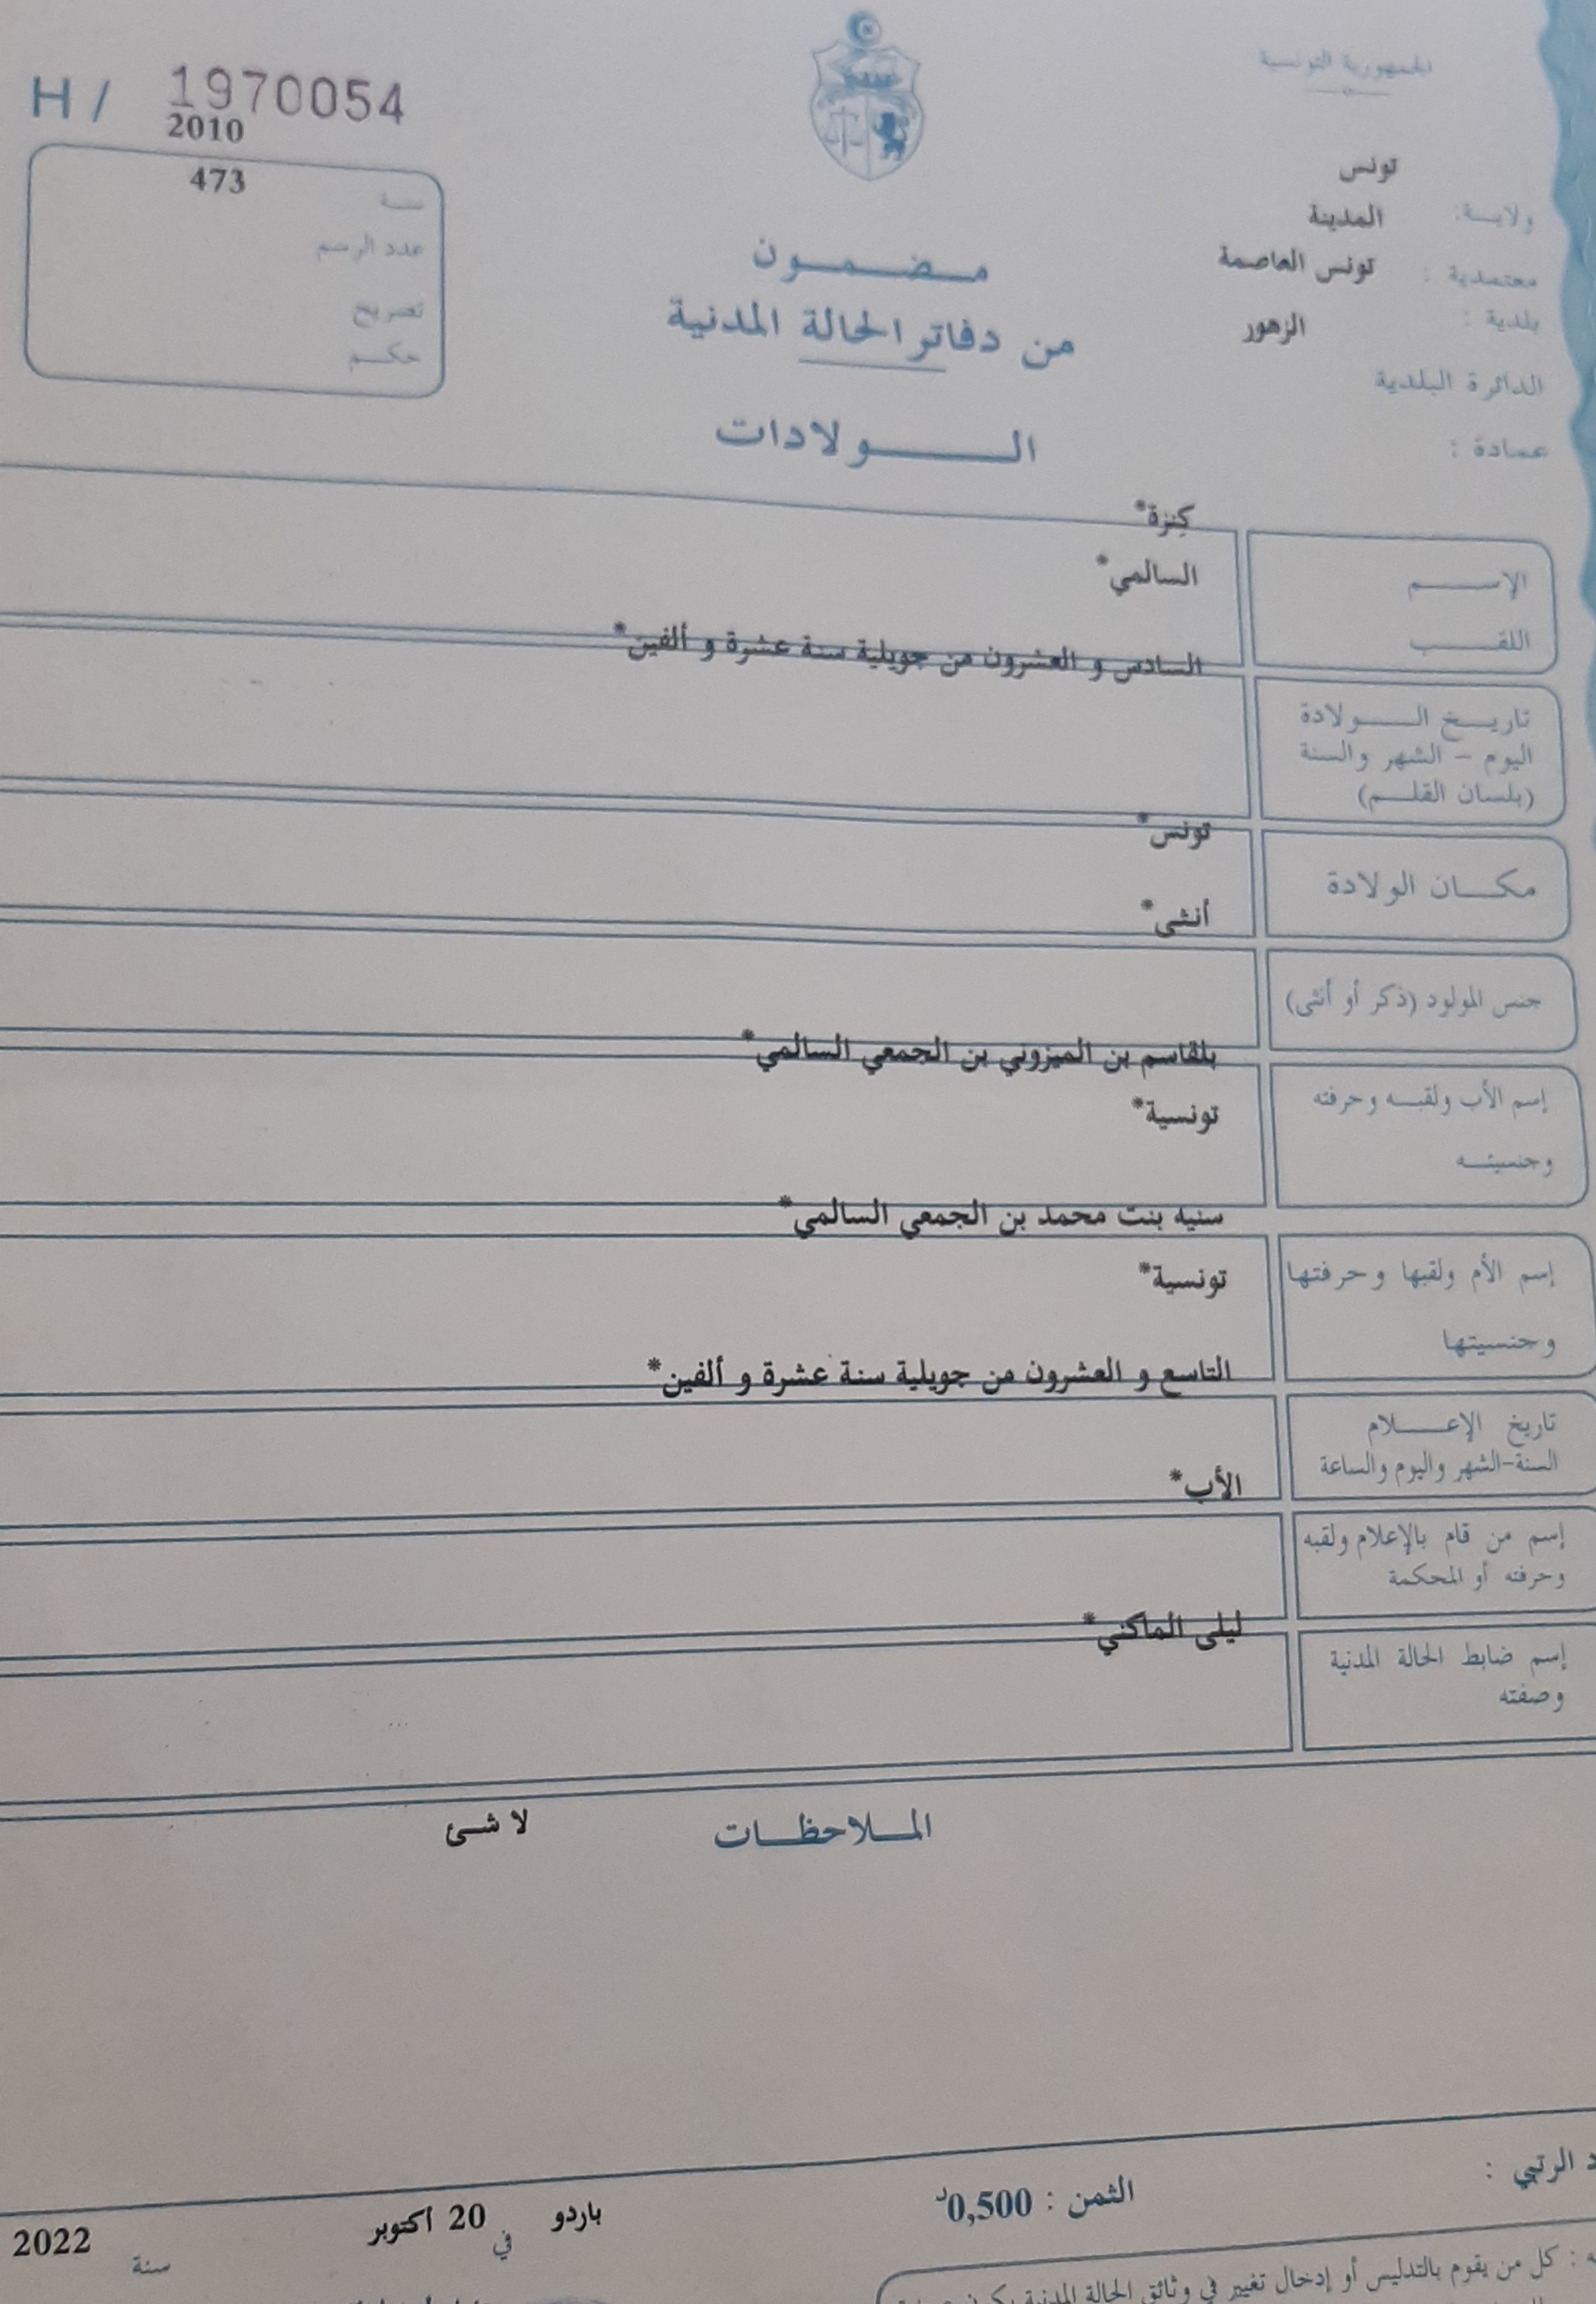 H / 1970054
الجمهورية التونسية
2010
473
سنة
عدد الرسم
تصريح
حكم
تونس
ولاية:
المدينة
معتمدية :
تونس العاصمة
بلدية :
الزهور
الدائرة البلدية
عمادة :
مضمون
من دفاتر الحالة المدنية
الولادات
كنزة*
الإسم
السالمي*
اللقب
السادس و العشرون من جويلية سنة عشرة و ألفين*
تاريخ الولادة
اليوم - الشهر والسنة
(بلسان القلم)
تونس*
مكان الولادة
أنثى*
جنس المولود (ذكر أو أنثى)
بلقاسم بن الميزوني بن الجمعي السالمي*
إسم الأب ولقبه وحرفته
تونسية*
وجنسيته
سنيه بنت محمد بن الجمعي السالمي*
إسم الأم ولقبها وحرفتها
تونسية*
وجنسيتها
التاسع و العشرون من جويلية سنة عشرة و ألفين*
تاريخ الإعلام
السنة-الشهر واليوم والساعة
الأب*
إسم من قام بالإعلام ولقبه
وحرفته أو المحكمة
ليلى الماكني*
إسم ضابط الحالة المدنية
وصفته
الملاحظات لا شئ
الرتبي :
الثمن : 0,500د
باردو في 20 أكتوبر سنة 2022
: كل من يقوم بالتدليس أو إدخال تغيير في وثائق الحالة المدنية يكون